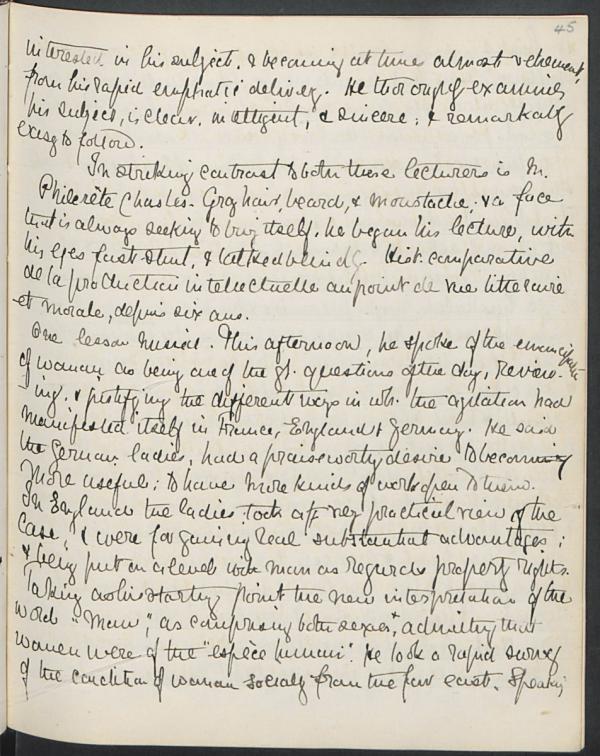 45
interested in his subject, & becoming at times almost vehement,
from his rapid emphatic delivery. He thoroughly examines
his subject, is clear, intelligent, & sincere; & remarkably
easy to follow.
In striking contrast to both these lecturers is M.
Philarète Chasles. Gray hair, beard, & moustache; & a face
that is always seeking to bury itself. he began his lecture, with
his eyes fast shut, & talked blindly. Hist. comparative
de la production intellectuelle au point de vue litteraire
et morale, depuis six ans.
One lesson musical. This afternoon, he spoke of the emancipation
of woman as being one of the gt. questions of the day, review-
ing, & justifying the different ways in wh. the agitation had
manifested itself in France, England & Germany. He said
the German ladies, had a praiseworthy desire to becoming
more useful; to have more kinds of work open to them.
In England the ladies took a very practical view of the
case, & were for gaining real substantial advantages;
& being put on a level with man as regards property rights.
Taking as his starting point the new interpretation of the
word "Man", as comprising both sexes, & admitting that
women were of the "espèce humain". He took a rapid survey
of the condition of woman socially from the far east. Speaking